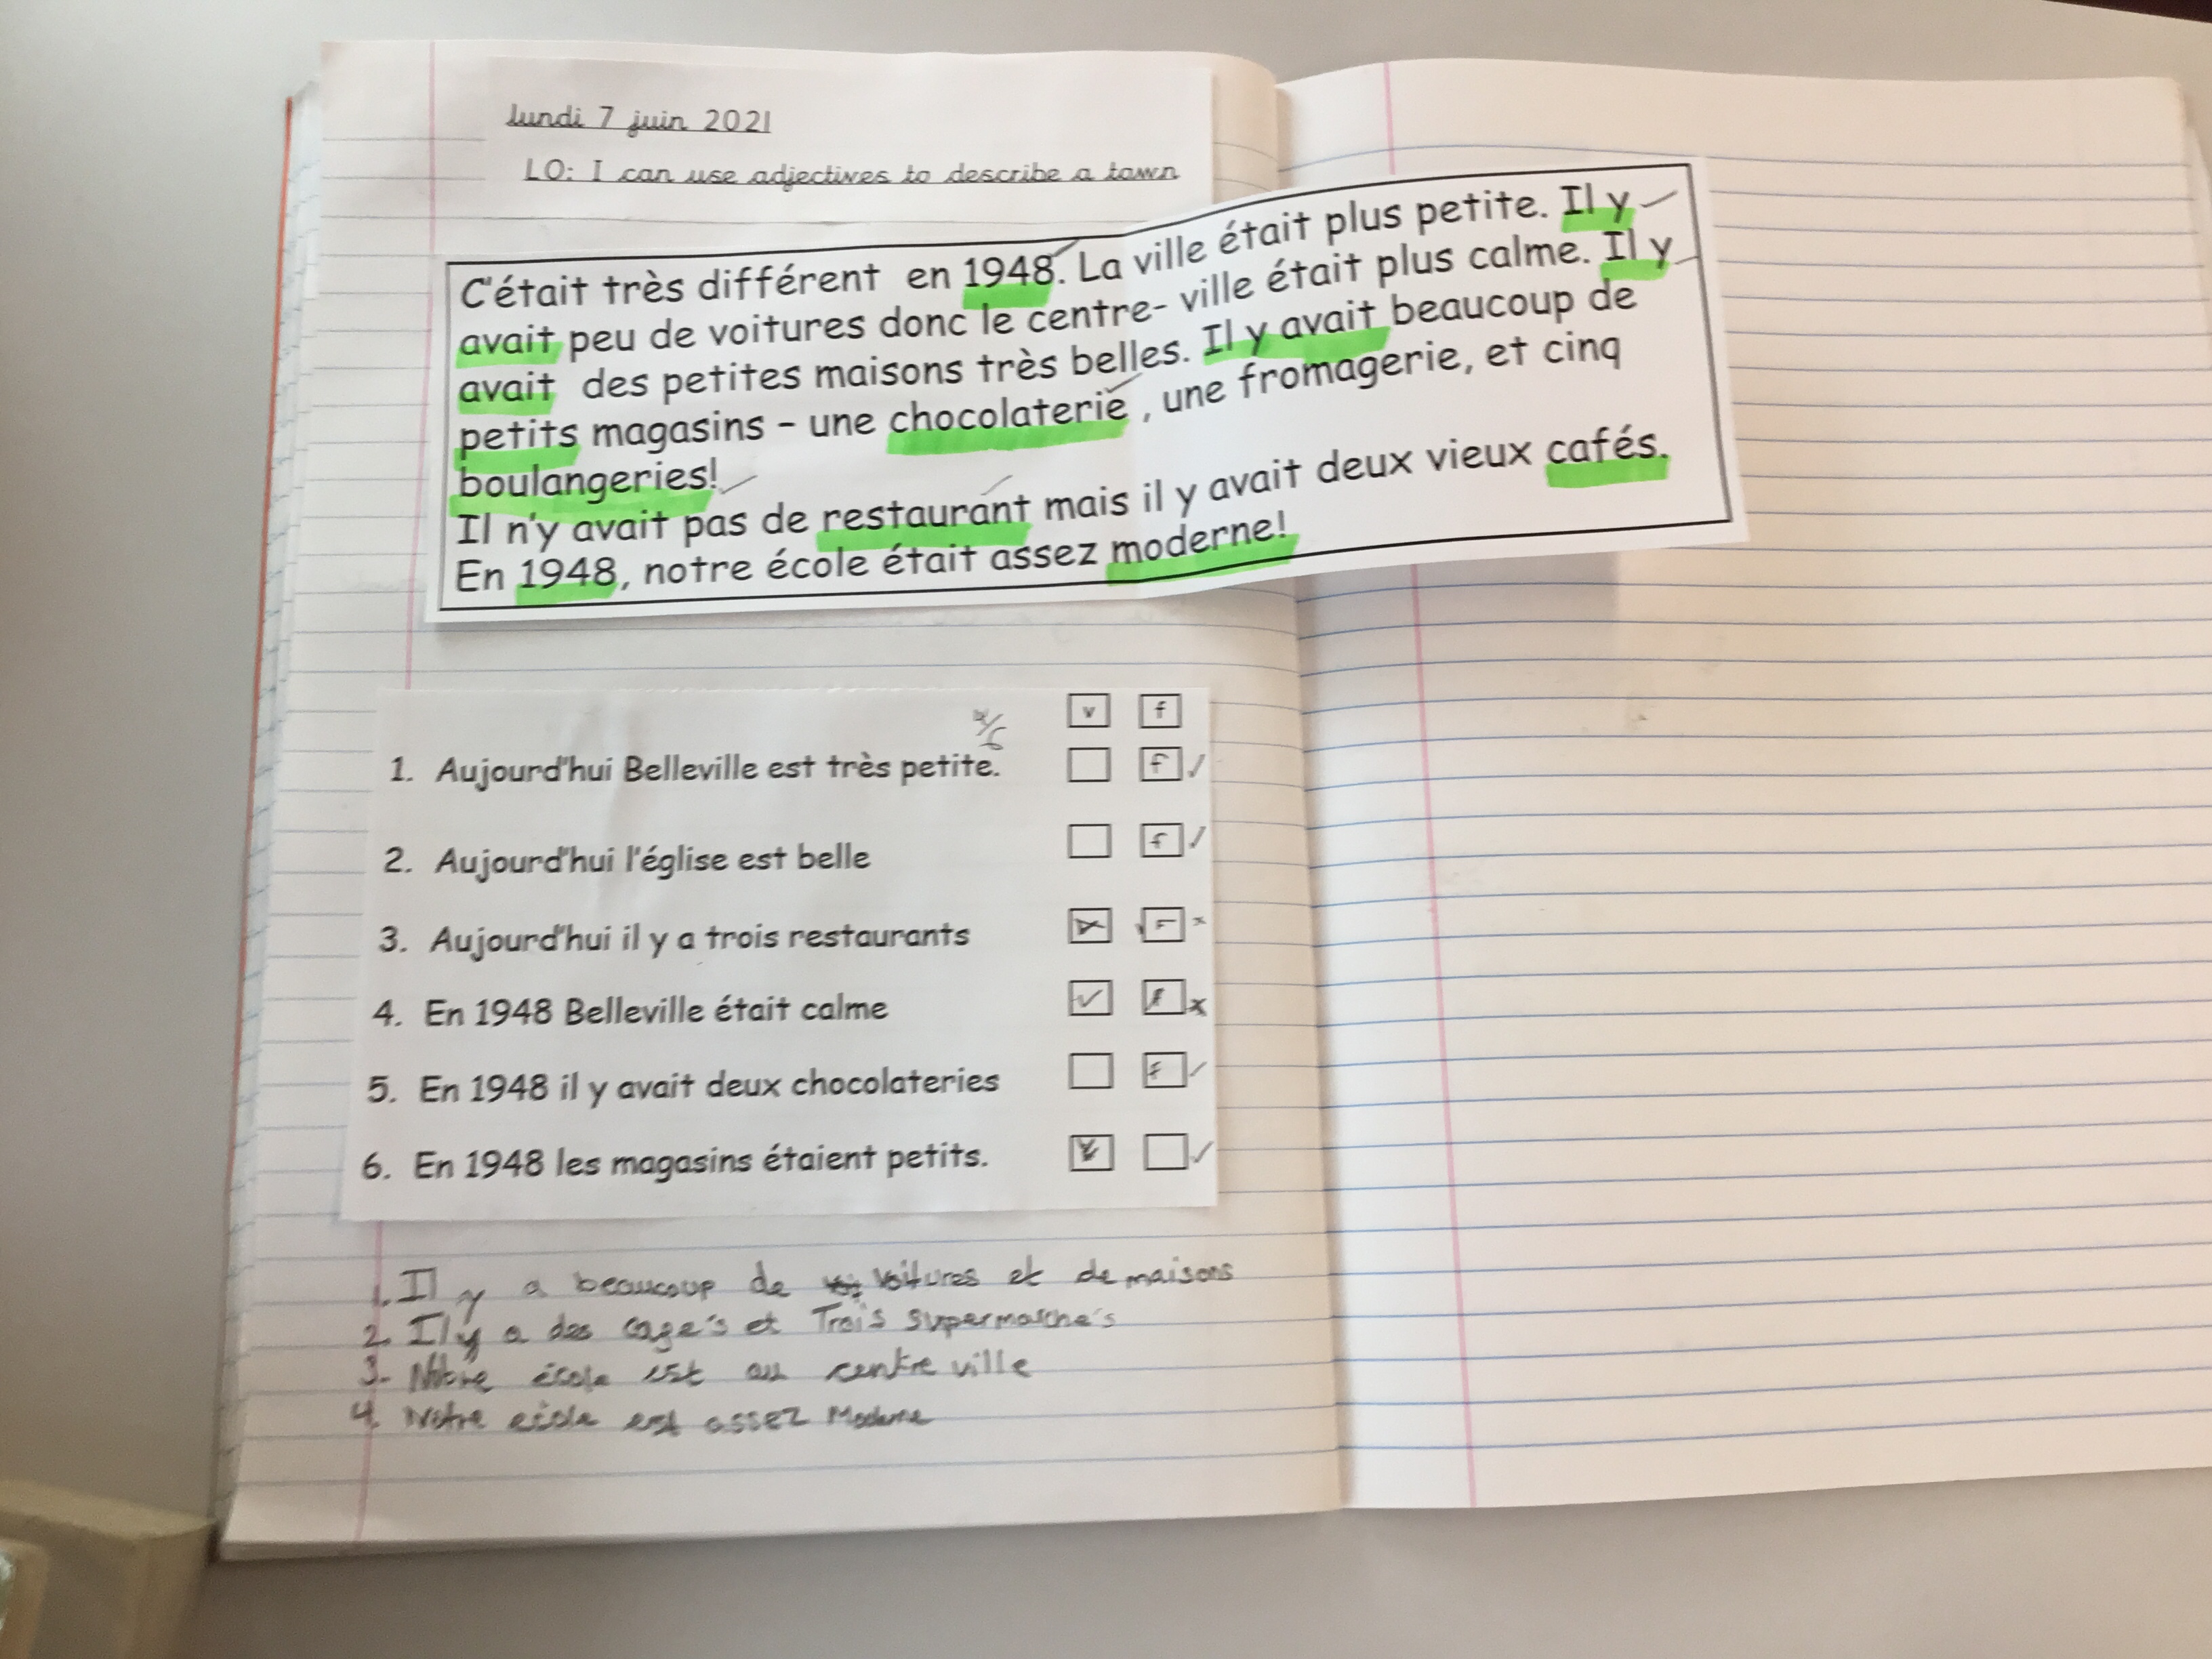 lundi 7 juin 2021
LO: I can use adjectives to describe a town
C'était très différent en 1948. La ville était plus petite. Il y
avait peu de voitures donc le centre- ville était plus calme. Il y
avait des petites maisons très belles. Il y avait beaucoup de
petits magasins - une chocolaterie , une fromagerie, et cinq
boulangeries!
Il n'y avait pas de restaurant mais il y avait deux vieux cafés.
En 1948, notre école était assez moderne!
v f
1. Aujourd'hui Belleville est très petite. f ✓
2. Aujourd'hui l'église est belle f ✓
3. Aujourd'hui il y a trois restaurants
4. En 1948 Belleville était calme ✓ f x
5. En 1948 il y avait deux chocolateries f ✓
6. En 1948 les magasins étaient petits. ✓
1. Il y a beaucoup de voitures et de maisons
2. Il y a des et Trois supermarche's
3. Notre école est au centre ville
4. Notre école est assez Moderne